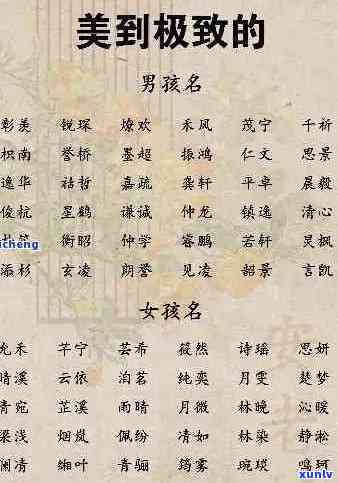 美到极致的
男孩名
彰羡 锐琛 燎欢 禾风 茂宁 千祈
枳南 誉桥 墨超 振鸿 仁文 思景
逸华 祜哲 嘉疏 龚轩 平卓 晨毅
俊杭 星鹤 谦诚 仲龙 镇逸 清心
衡昭 仲学 睿鹏 若轩 灵枫
icheng
添杉 玄凌 朗誉 见凌 韶景 言凯
女孩名
允禾 芊宁 芸希 筱然 诗瑶 思妍
晴溪 云依 泊茗 纯奕 月雯 楚梦
青宛 芷溪 雨晴 月微 林晚 沁暖
梁浅 烟岚 佩纷 清如 林染 静淞
阑清 缃叶 青骊 筠雾 琬琰 鸣珂
xunlv